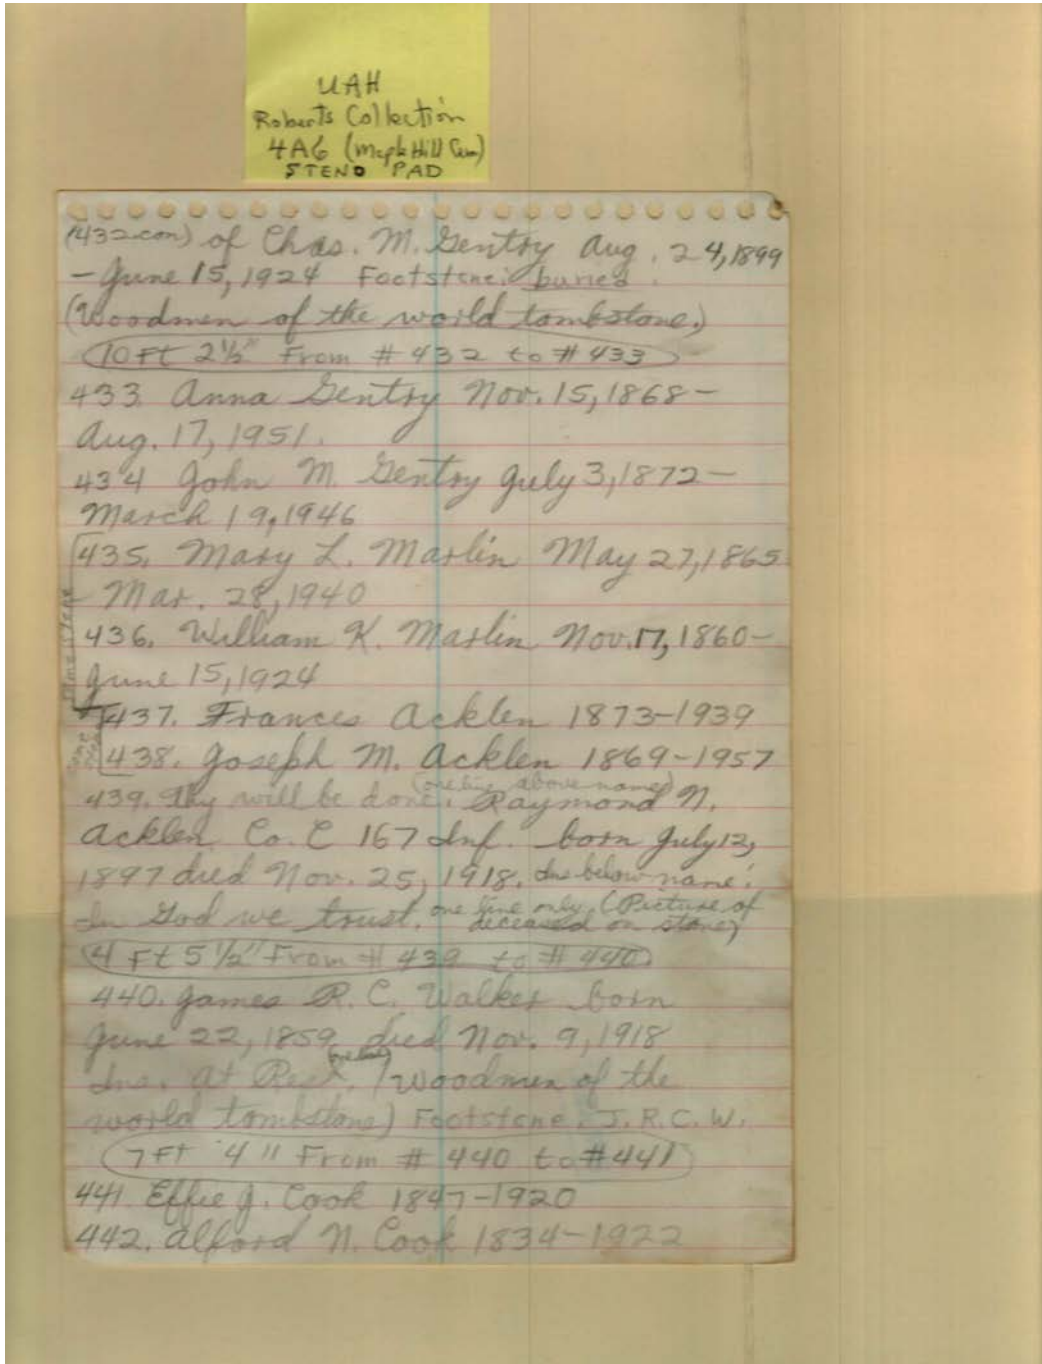 UAH
Roberts Collection
4A6 (Maple Hill Cem)
STENO PAD
(432 con) of Chas. M. Gentry Aug. 24, 1899
- June 15, 1924 Footstone: buried.
(Woodmen of the world tombstone.)
10 Ft 2½" From # 432 to # 433
433. Anna Gentry Nov. 15, 1868 -
Aug. 17, 1951.
434 John M. Gentry July 3, 1872 -
March 19, 1946
435. Mary L. Marlin May 27, 1865
- Mar. 28, 1940
436. William K. Marlin Nov. 17, 1860 -
June 15, 1924
same stone
437. Frances Acklen 1873-1939
438. Joseph M. Acklen 1869-1957
same stone
(one line above name)
439. Thy will be done. Raymond N.
Acklen Co. C 167 Inf. born July 12,
1897 died Nov. 25, 1918. Ins. below name:
In God we trust. one line only. (Picture of
deceased on stone)
4 Ft 5 ½" From # 439 to # 440
440. James R. C. Walker born
June 22, 1859 died Nov. 9, 1918
Ins. At Rest. (one line) (Woodmen of the
world tombstone) Footstone. J. R. C. W.
7 Ft 4" From # 440 to # 441
441. Effie J. Cook 1847-1920
442. Alford N. Cook 1834-1922